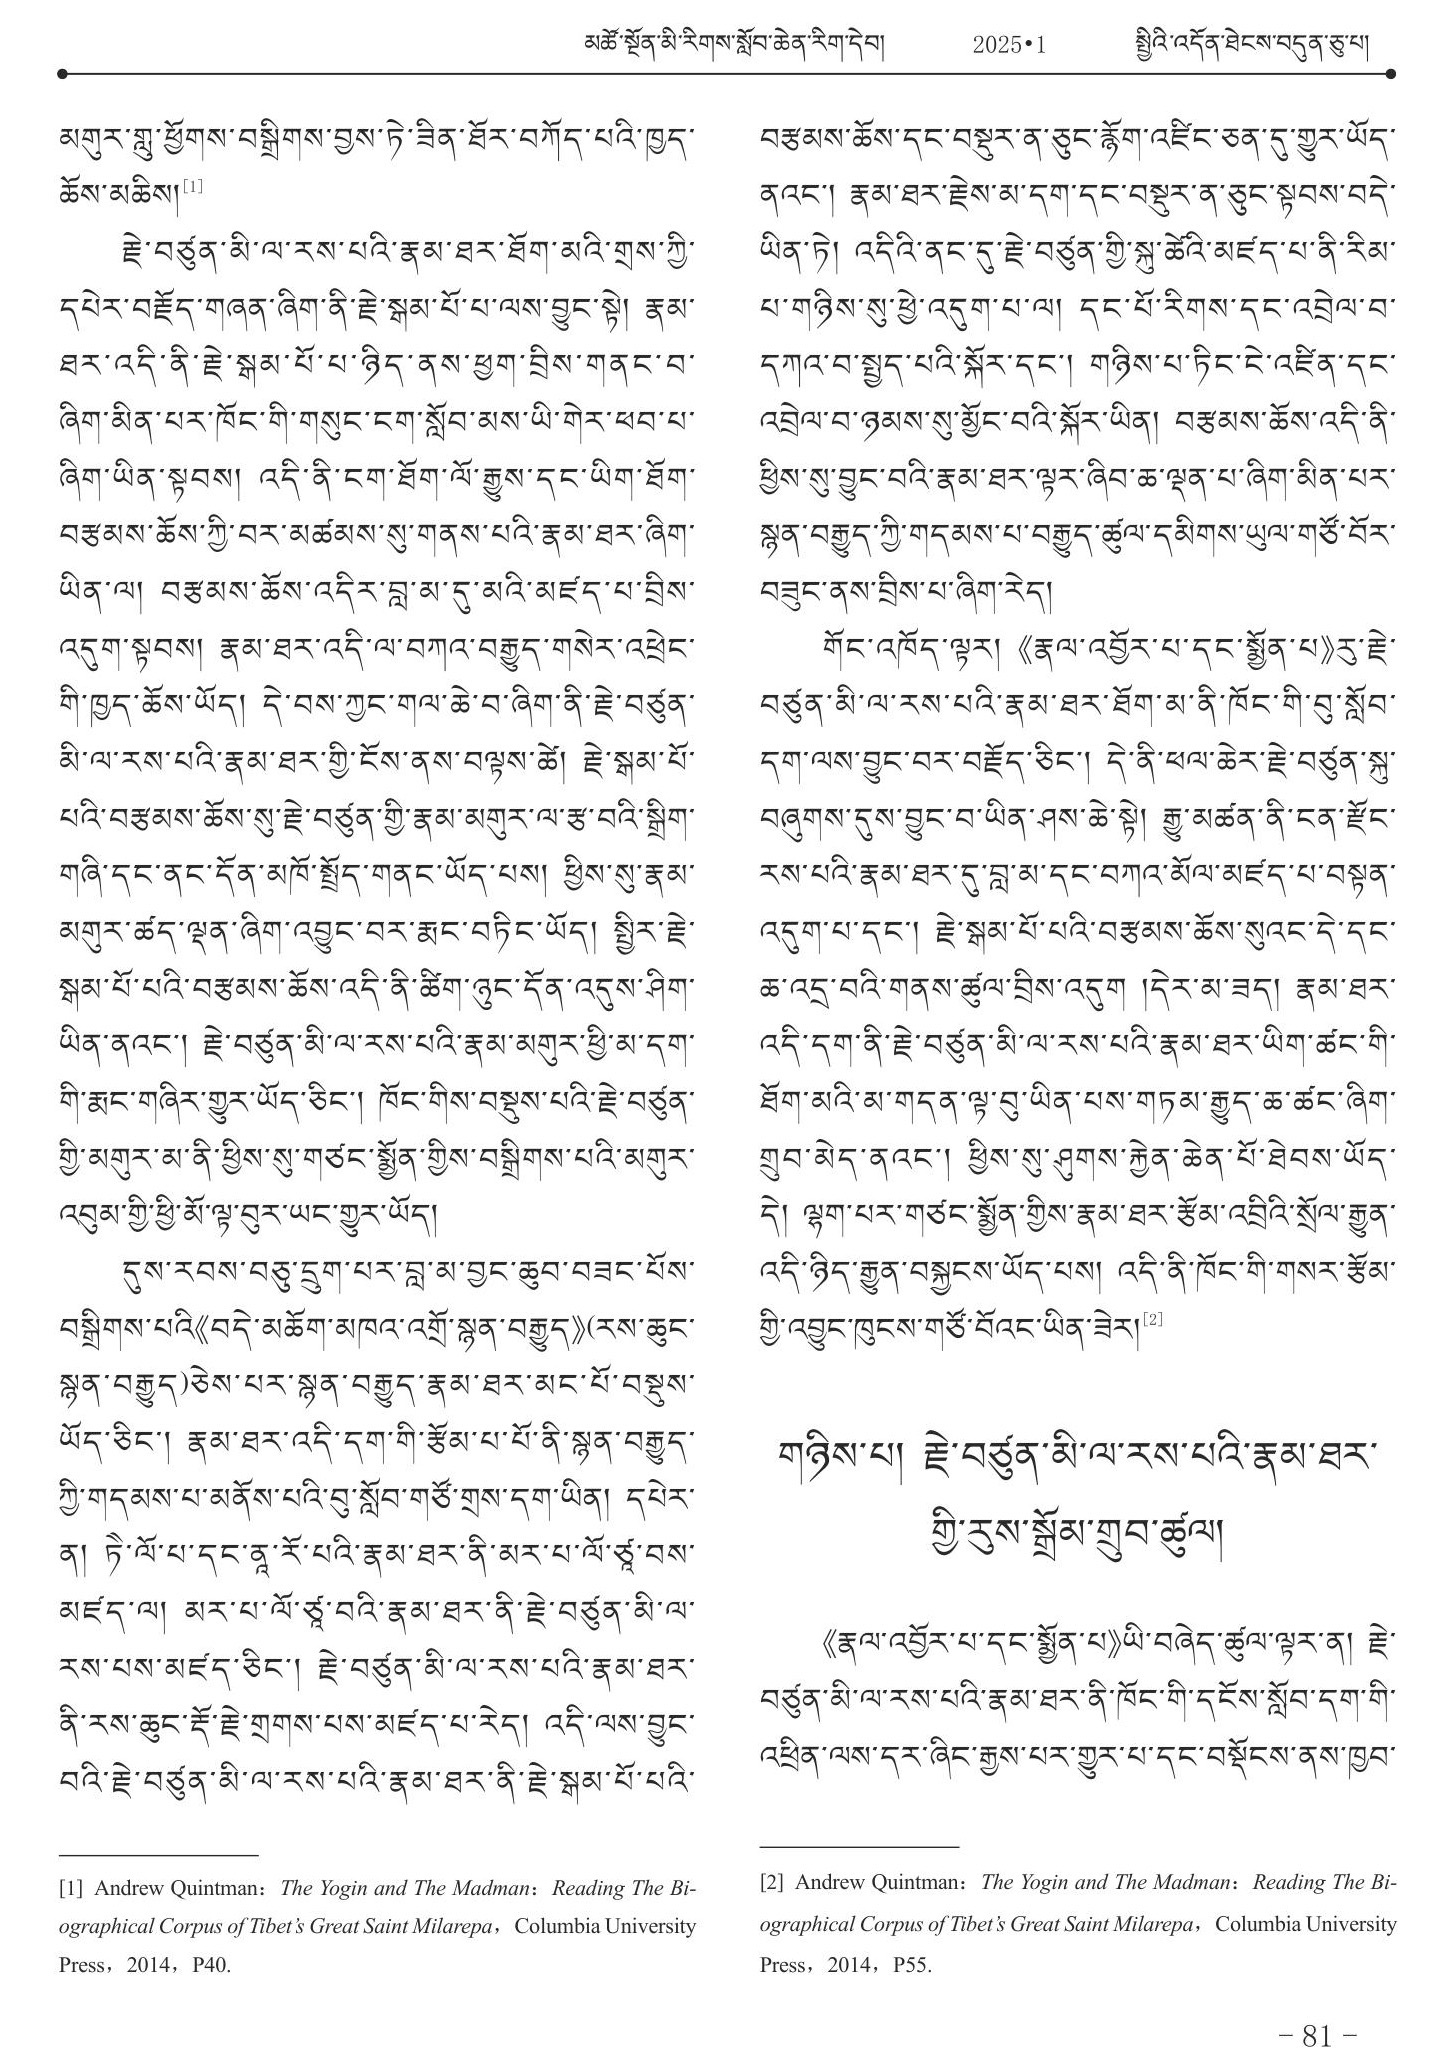 མཚོ་སྔོན་མི་རིགས་སློབ་ཆེན་རིག་དེབ། 2025•1 སྤྱིའི་འདོན་ཐེངས་བདུན་ཅུ་པ།
མགུར་གླུ་ཕྱོགས་བསྒྲིགས་བྱས་ཏེ་ཟིན་ཐོར་བཀོད་པའི་ཁྱད་
ཆོས་མཆིས།[1]
རྗེ་བཙུན་མི་ལ་རས་པའི་རྣམ་ཐར་ཐོག་མའི་གྲས་ཀྱི་
དཔེར་བརྗོད་གཞན་ཞིག་ནི་རྗེ་སྒམ་པོ་པ་ལས་བྱུང་སྟེ། རྣམ་
ཐར་འདི་ནི་རྗེ་སྒམ་པོ་པ་ཉིད་ནས་ཕྱག་བྲིས་གནང་བ་
ཞིག་མིན་པར་ཁོང་གི་གསུང་ངག་སློབ་མས་ཡི་གེར་ཕབ་པ་
ཞིག་ཡིན་སྟབས། འདི་ནི་ངག་ཐོག་ལོ་རྒྱུས་དང་ཡིག་ཐོག་
བརྩམས་ཆོས་ཀྱི་བར་མཚམས་སུ་གནས་པའི་རྣམ་ཐར་ཞིག་
ཡིན་ལ། བརྩམས་ཆོས་འདིར་བླ་མ་དུ་མའི་མཛད་པ་བྲིས་
འདུག་སྟབས། རྣམ་ཐར་འདི་ལ་བཀའ་བརྒྱུད་གསེར་འཕྲེང་
གི་ཁྱད་ཆོས་ཡོད། དེ་བས་ཀྱང་གལ་ཆེ་བ་ཞིག་ནི་རྗེ་བཙུན་
མི་ལ་རས་པའི་རྣམ་ཐར་གྱི་ངོས་ནས་བལྟས་ཚེ། རྗེ་སྒམ་པོ་
པའི་བརྩམས་ཆོས་སུ་རྗེ་བཙུན་གྱི་རྣམ་མགུར་ལ་རྩ་བའི་སྒྲིག་
གཞི་དང་ནང་དོན་མཁོ་སྤྲོད་གནང་ཡོད་པས། ཕྱིས་སུ་རྣམ་
མགུར་ཚད་ལྡན་ཞིག་འབྱུང་བར་རྨང་བཏིང་ཡོད། སྤྱིར་རྗེ་
སྒམ་པོ་པའི་བརྩམས་ཆོས་འདི་ནི་ཚིག་ཉུང་དོན་འདུས་ཤིག་
ཡིན་ནའང་། རྗེ་བཙུན་མི་ལ་རས་པའི་རྣམ་མགུར་ཕྱི་མ་དག་
གི་རྨང་གཞིར་གྱུར་ཡོད་ཅིང་། ཁོང་གིས་བསྡུས་པའི་རྗེ་བཙུན་
གྱི་མགུར་མ་ནི་ཕྱིས་སུ་གཙང་སྨྱོན་གྱིས་བསྒྲིགས་པའི་མགུར་
འབུམ་གྱི་ཕྱི་མོ་ལྟ་བུར་ཡང་གྱུར་ཡོད།
དུས་རབས་བཅུ་དྲུག་པར་བླ་མ་བྱང་ཆུབ་བཟང་པོས་
བསྒྲིགས་པའི《བདེ་མཆོག་མཁའ་འགྲོ་སྙན་བརྒྱུད》(རས་ཆུང་
སྙན་བརྒྱུད)ཅེས་པར་སྙན་བརྒྱུད་རྣམ་ཐར་མང་པོ་བསྡུས་
ཡོད་ཅིང་། རྣམ་ཐར་འདི་དག་གི་རྩོམ་པ་པོ་ནི་སྙན་བརྒྱུད་
ཀྱི་གདམས་པ་མནོས་པའི་བུ་སློབ་གཙོ་གྲས་དག་ཡིན། དཔེར་
ན། ཏེ་ལོ་པ་དང་ནཱ་རོ་པའི་རྣམ་ཐར་ནི་མར་པ་ལོ་ཙཱ་བས་
མཛད་ལ། མར་པ་ལོ་ཙཱ་བའི་རྣམ་ཐར་ནི་རྗེ་བཙུན་མི་ལ་
རས་པས་མཛད་ཅིང་། རྗེ་བཙུན་མི་ལ་རས་པའི་རྣམ་ཐར་
ནི་རས་ཆུང་རྡོ་རྗེ་གྲགས་པས་མཛད་པ་རེད། འདི་ལས་བྱུང་
བའི་རྗེ་བཙུན་མི་ལ་རས་པའི་རྣམ་ཐར་ནི་རྗེ་སྒམ་པོ་པའི་
[1] Andrew Quintman：The Yogin and The Madman：Reading The Bi-
ographical Corpus of Tibet’s Great Saint Milarepa，Columbia University
Press，2014，P40.
བརྩམས་ཆོས་དང་བསྡུར་ན་ཅུང་རྙོག་འཛིང་ཅན་དུ་གྱུར་ཡོད་
ནའང་། རྣམ་ཐར་རྗེས་མ་དག་དང་བསྡུར་ན་ཅུང་སྟབས་བདེ་
ཡིན་ཏེ། འདིའི་ནང་དུ་རྗེ་བཙུན་གྱི་སྐུ་ཚེའི་མཛད་པ་ནི་རིམ་
པ་གཉིས་སུ་ཕྱེ་འདུག་པ་ལ། དང་པོ་རིགས་དང་འབྲེལ་བ་
དཀའ་བ་སྤྱད་པའི་སྐོར་དང་། གཉིས་པ་ཏིང་ངེ་འཛིན་དང་
འབྲེལ་བ་ཉམས་སུ་མྱོང་བའི་སྐོར་ཡིན། བརྩམས་ཆོས་འདི་ནི་
ཕྱིས་སུ་བྱུང་བའི་རྣམ་ཐར་ལྟར་ཞིབ་ཆ་ལྡན་པ་ཞིག་མིན་པར་
སྙན་བརྒྱུད་ཀྱི་གདམས་པ་བརྒྱུད་ཚུལ་དམིགས་ཡུལ་གཙོ་བོར་
བཟུང་ནས་བྲིས་པ་ཞིག་རེད།
གོང་འཁོད་ལྟར། 《རྣལ་འབྱོར་པ་དང་སྨྱོན་པ》རུ་རྗེ་
བཙུན་མི་ལ་རས་པའི་རྣམ་ཐར་ཐོག་མ་ནི་ཁོང་གི་བུ་སློབ་
དག་ལས་བྱུང་བར་བརྗོད་ཅིང་། དེ་ནི་ཕལ་ཆེར་རྗེ་བཙུན་སྐུ་
བཞུགས་དུས་བྱུང་བ་ཡིན་ཤས་ཆེ་སྟེ། རྒྱུ་མཚན་ནི་ངན་རྫོང་
རས་པའི་རྣམ་ཐར་དུ་བླ་མ་དང་བཀའ་མོལ་མཛད་པ་བསྟན་
འདུག་པ་དང་། རྗེ་སྒམ་པོ་པའི་བརྩམས་ཆོས་སུའང་དེ་དང་
ཆ་འདྲ་བའི་གནས་ཚུལ་བྲིས་འདུག །དེར་མ་ཟད། རྣམ་ཐར་
འདི་དག་ནི་རྗེ་བཙུན་མི་ལ་རས་པའི་རྣམ་ཐར་ཡིག་ཚང་གི་
ཐོག་མའི་མ་གདན་ལྟ་བུ་ཡིན་པས་གཏམ་རྒྱུད་ཆ་ཚང་ཞིག་
གྲུབ་མེད་ནའང་། ཕྱིས་སུ་ཤུགས་རྐྱེན་ཆེན་པོ་ཐེབས་ཡོད་
དེ། ལྷག་པར་གཙང་སྨྱོན་གྱིས་རྣམ་ཐར་རྩོམ་འབྲིའི་སྲོལ་རྒྱུན་
འདི་ཉིད་རྒྱུན་བསྐྱངས་ཡོད་པས། འདི་ནི་ཁོང་གི་གསར་རྩོམ་
གྱི་འབྱུང་ཁུངས་གཙོ་བོའང་ཡིན་ཟེར།[2]
གཉིས་པ། རྗེ་བཙུན་མི་ལ་རས་པའི་རྣམ་ཐར་
གྱི་རུས་སྒྲོམ་གྲུབ་ཚུལ།
《རྣལ་འབྱོར་པ་དང་སྨྱོན་པ》ཡི་བཞེད་ཚུལ་ལྟར་ན། རྗེ་
བཙུན་མི་ལ་རས་པའི་རྣམ་ཐར་ནི་ཁོང་གི་དངོས་སློབ་དག་གི་
འཕྲིན་ལས་དར་ཞིང་རྒྱས་པར་གྱུར་པ་དང་བསྡོངས་ནས་ཁྱབ་
[2] Andrew Quintman：The Yogin and The Madman：Reading The Bi-
ographical Corpus of Tibet’s Great Saint Milarepa，Columbia University
Press，2014，P55.
– 81 –